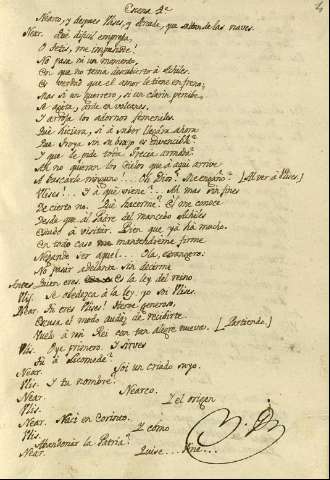 4
Escena 2ª
Nearco, y despues Ulises, y Arcade, que saltan de las naves.
Near. Que dificil empresa,
O Tetis, me impusiste!
No pasa ni un momento,
En que no tema descubrirse à Achiles.
Es verdad que el amor le tiene en freno;
Mas si un guerrero, si un clarin percibe,
Se agita, arde en volcanes,
Y arroja los adornos femeniles.
Que hiciera, si à saber llegára ahora
Que Troya sin su brazo es invencible?
Y que le pide toda Grecia armada?
Ah no quieran los Cielos que à aqui arrive
A buscarle ninguno!... Oh Dios! Me engaño? [Al ver à Ulises.]
Ulises!... Y à qué viene?... Al mas sin fines
De cierto no. Què hacerme? El me conoce
Desde que al Padre del mancebo Achiles
Acudó à visitar. Bien que yá ha mucho.
En todo caso me mantendré firme
Negando ser aquel... Ola, estrangero:
No pasar adelante sin decirme
Antes quien eres. Es la ley del reino
Ulis. Se obedezca à la Ley. yo soi Ulises.
Near. Tu eres Ulises? Heroe generoso,
Escusa el modo audáz de recibirte.
Vuelo à mi Rei con tan alegre nueva. [Partiendo.]
Ulis. Oye primero. Y sirves
Tu à Licomede?
Near. Soi un criado suyo.
Ulis. Y tu nombre?
Near. Nearco.
Ulis. Y el origen
Near. Naci en Corinto.
Ulis. Y como
Abandonàr la Patria?
Near. Quise... Vine...